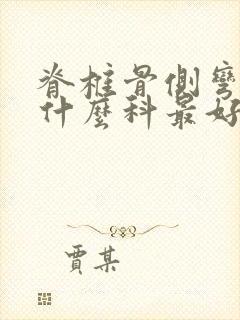 脊椎骨側彎
什麼科最好
賈某